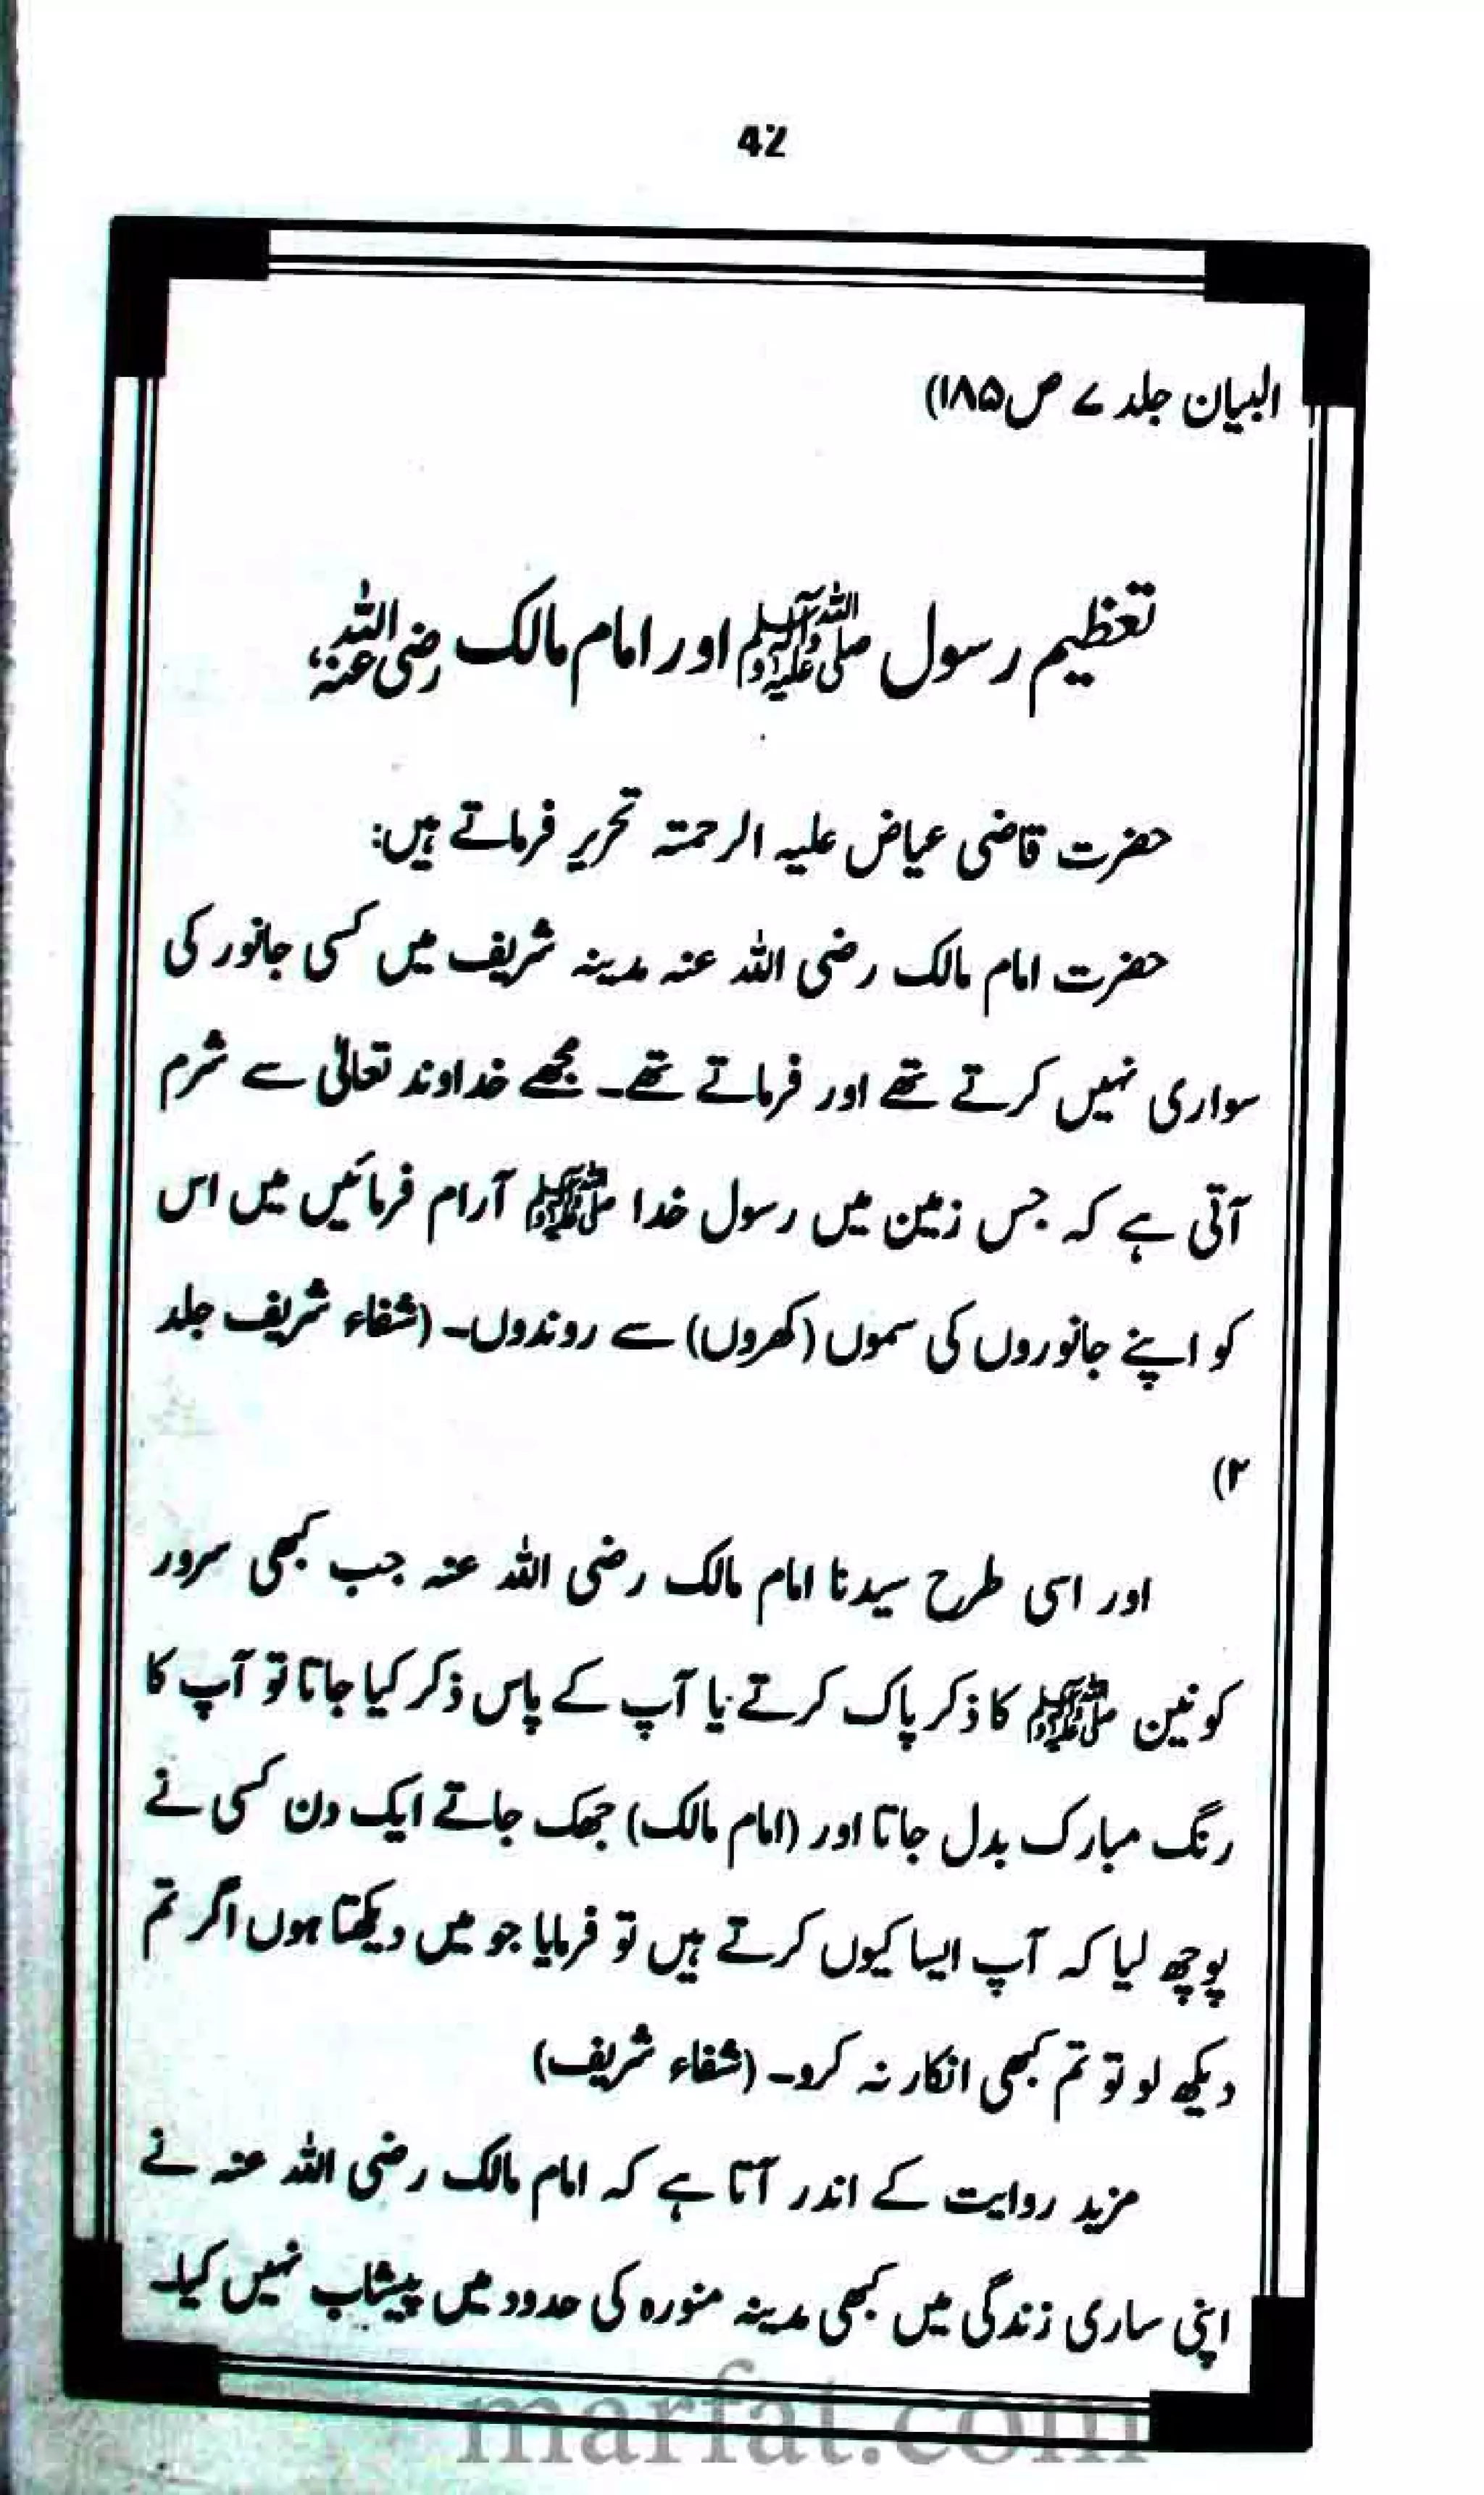 42
البیان جلد ۷ ص ۱۸۵)
تعظیم رسول ﷺ اور امام مالک رضی اللہ عنہ
حضرت قاضی عیاض علیہ الرحمتہ تحریر فرماتے ہیں:
حضرت امام مالک رضی اللہ عنہ مدینہ شریف میں کسی جانور کی
سواری نہیں کرتے تھے اور فرماتے تھے۔ مجھے خداوند تعالٰی سے شرم
آتی ہے کہ جس زمین میں رسول خدا ﷺ آرام فرمائیں میں اس
کو اپنے جانوروں کی سموں (کھروں) سے روندوں۔ (شفاء شریف جلد
۲)
اور اسی طرح سیدنا امام مالک رضی اللہ عنہ جب کبھی سرور
کونین ﷺ کا ذکر پاک کرتے یا آپ کے پاس ذکر کیا جاتا تو آپ کا
رنگ مبارک بدل جاتا اور (امام مالک) جھک جاتے ایک دن کسی نے
پوچھ لیا کہ آپ ایسا کیوں کرتے ہیں تو فرمایا جو میں دیکھتا ہوں اگر تم
دیکھ لو تو تم کبھی انکار نہ کرو۔ (شفاء شریف)
مزید روایت کے اندر آتا ہے کہ امام مالک رضی اللہ عنہ نے
اپنی ساری زندگی میں کبھی مدینہ منورہ کی حدود میں پیشاب نہیں کیا۔
marfat.com